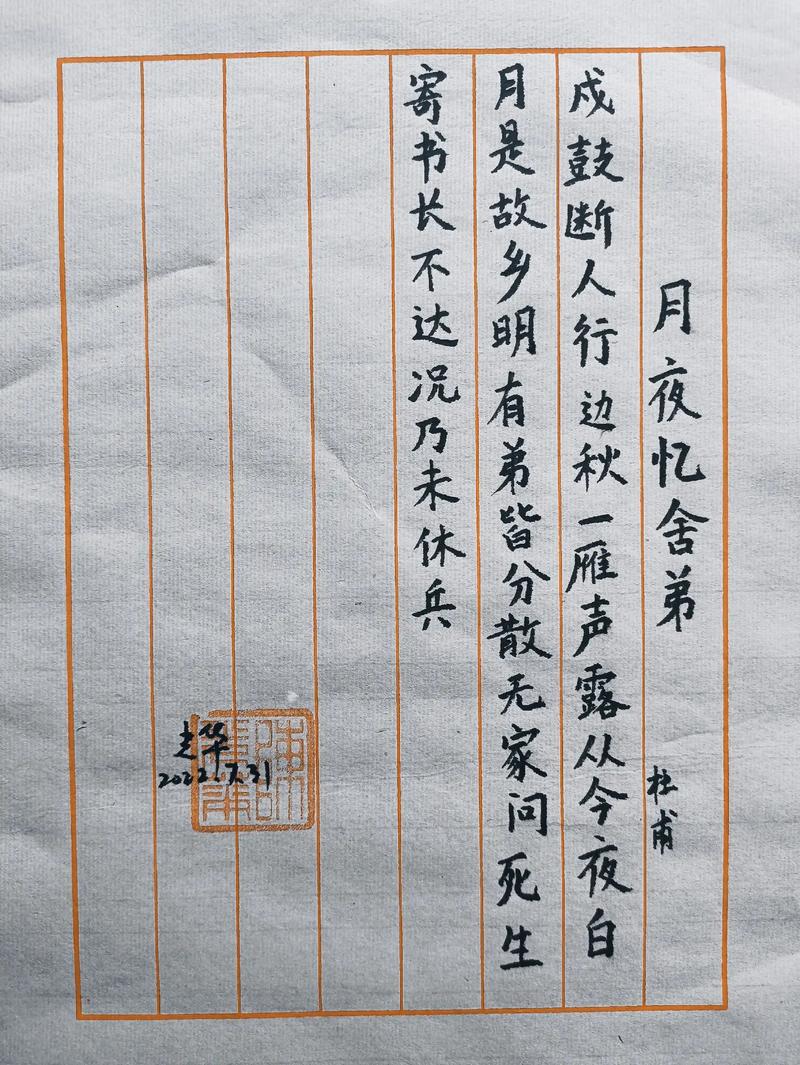 月夜忆舍弟
杜甫
戍鼓断人行边秋一雁声露从今夜白
月是故乡明有弟皆分散无家问死生
寄书长不达况乃未休兵
2022.7.31